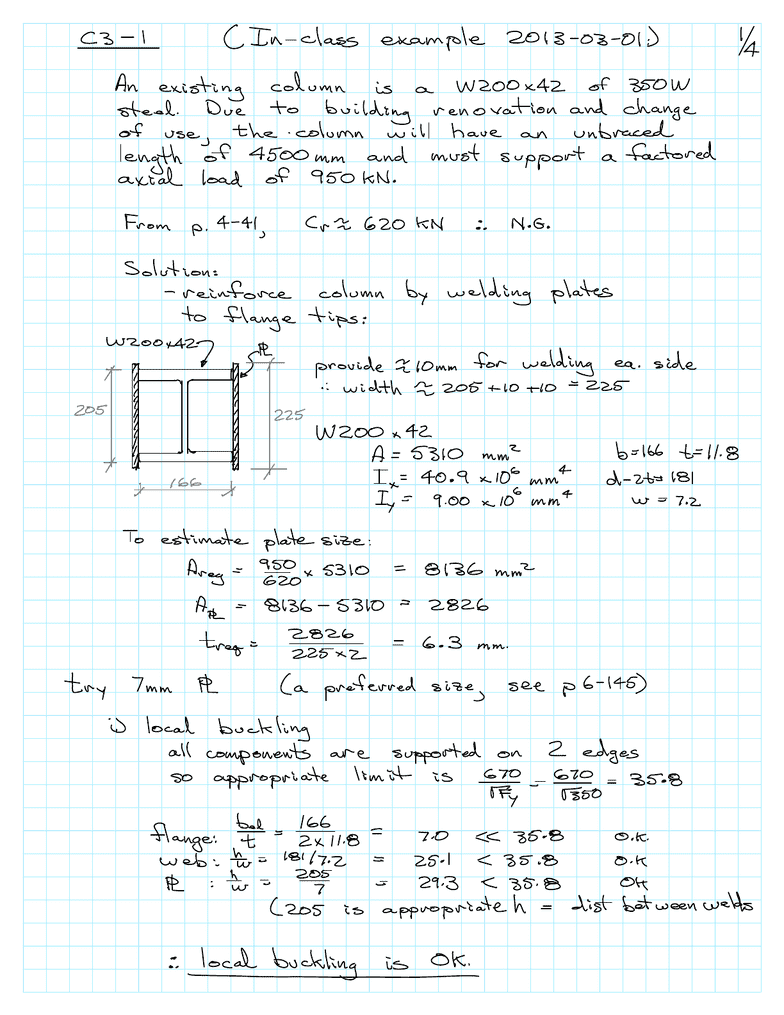 C3-1 (In-class example 2013-03-01:) 1/4
An existing column is a W200x42 of 350W
steel. Due to building renovation and change
of use, the column will have an unbraced
length of 4500mm and must support a factored
axial load of 950 kN.
From p. 4-41, Cr ≈ 620 kN ∴ N.G.
Solution:
- reinforce column by welding plates
to flange tips:
W200x42 ℄
provide ≈10mm for welding ea. side
∴ width ≈ 205 +10 +10 = 225
205
225
166
W200 x 42
A = 5310 mm² b=166 t=11.8
Ix = 40.9 x10⁶ mm⁴ d-2t= 181
Iy = 9.00 x10⁶ mm⁴ w = 7.2
To estimate plate size:
Areq = 950/620 x 5310 = 8136 mm²
APL = 8136 - 5310 = 2826
treq = 2826/(225x2) = 6.3 mm.
try 7mm PL (a preferred size, see p 6-145)
i) local buckling
all components are supported on 2 edges
so appropriate limit is 670/√Fy = 670/√350 = 35.8
flange: bel/t = 166/(2x11.8) = 7.0 << 35.8 O.K
web: h/w = 181/7.2 = 25.1 < 35.8 O.K
PL : h/w = 205/7 = 29.3 < 35.8 OK
(205 is appropriate h = dist between welds
∴ local buckling is OK.